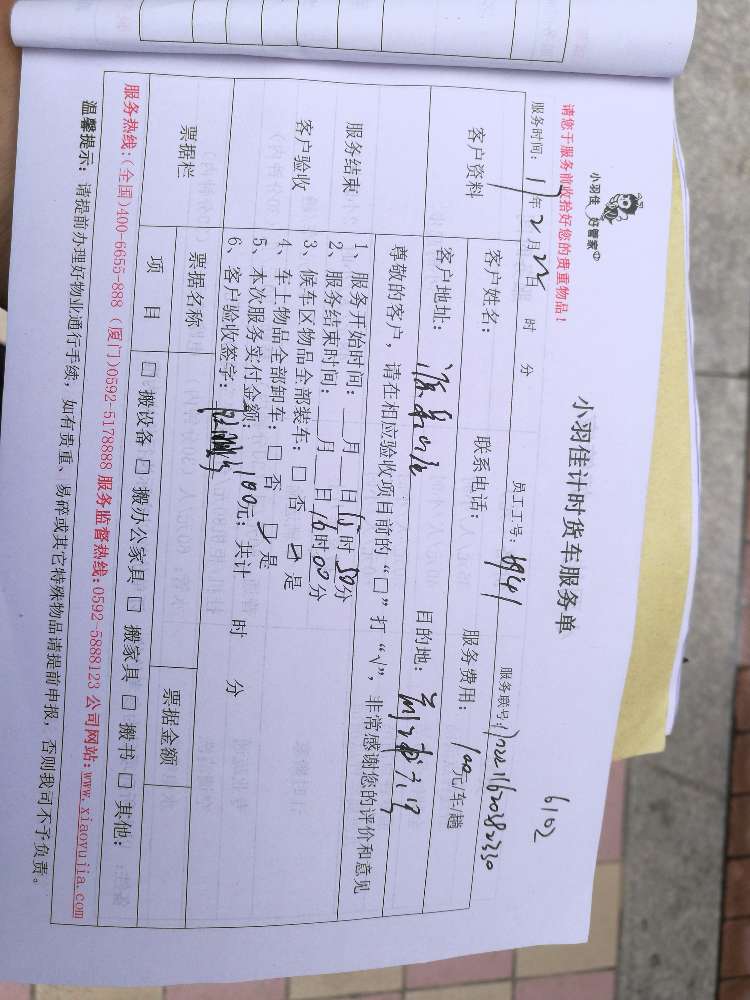 小羽佳 好管家
小羽佳计时货车服务单
6102
请您于服务前收拾好您的贵重物品！
服务时间：17年2月22日 时 分 员工工号：服务联号：
客户资料
客户姓名： 联系电话： 服务费用：100元/车/趟
客户地址： 目的地：
尊敬的客户，请在相应验收项目前的“口”打“√”，非常感谢您的评价和意见
服务结束
客户验收
1、服务开始时间：__月__日15时50分
2、服务结束时间：__月__日16时00分
3、候车区物品全部装车：□ 否 ☑ 是
4、车上物品全部卸车：□ 否 ☑ 是
5、本次服务实付金额：100元；共计 时 分
6、客户验收签字：
票据栏
票据名称 票据金额
项 目 □ 搬设备 □ 搬办公家具 □ 搬家具 □ 搬书 □ 其他：
服务热线：(全国)400-6655-888 (厦门)0592-5178888 服务监督热线：0592-5888123 公司网站：www.xiaoyujia.com
温馨提示：请提前办理好物业通行手续，如有贵重、易碎或其它特殊物品请提前申报，否则我司不予负责。